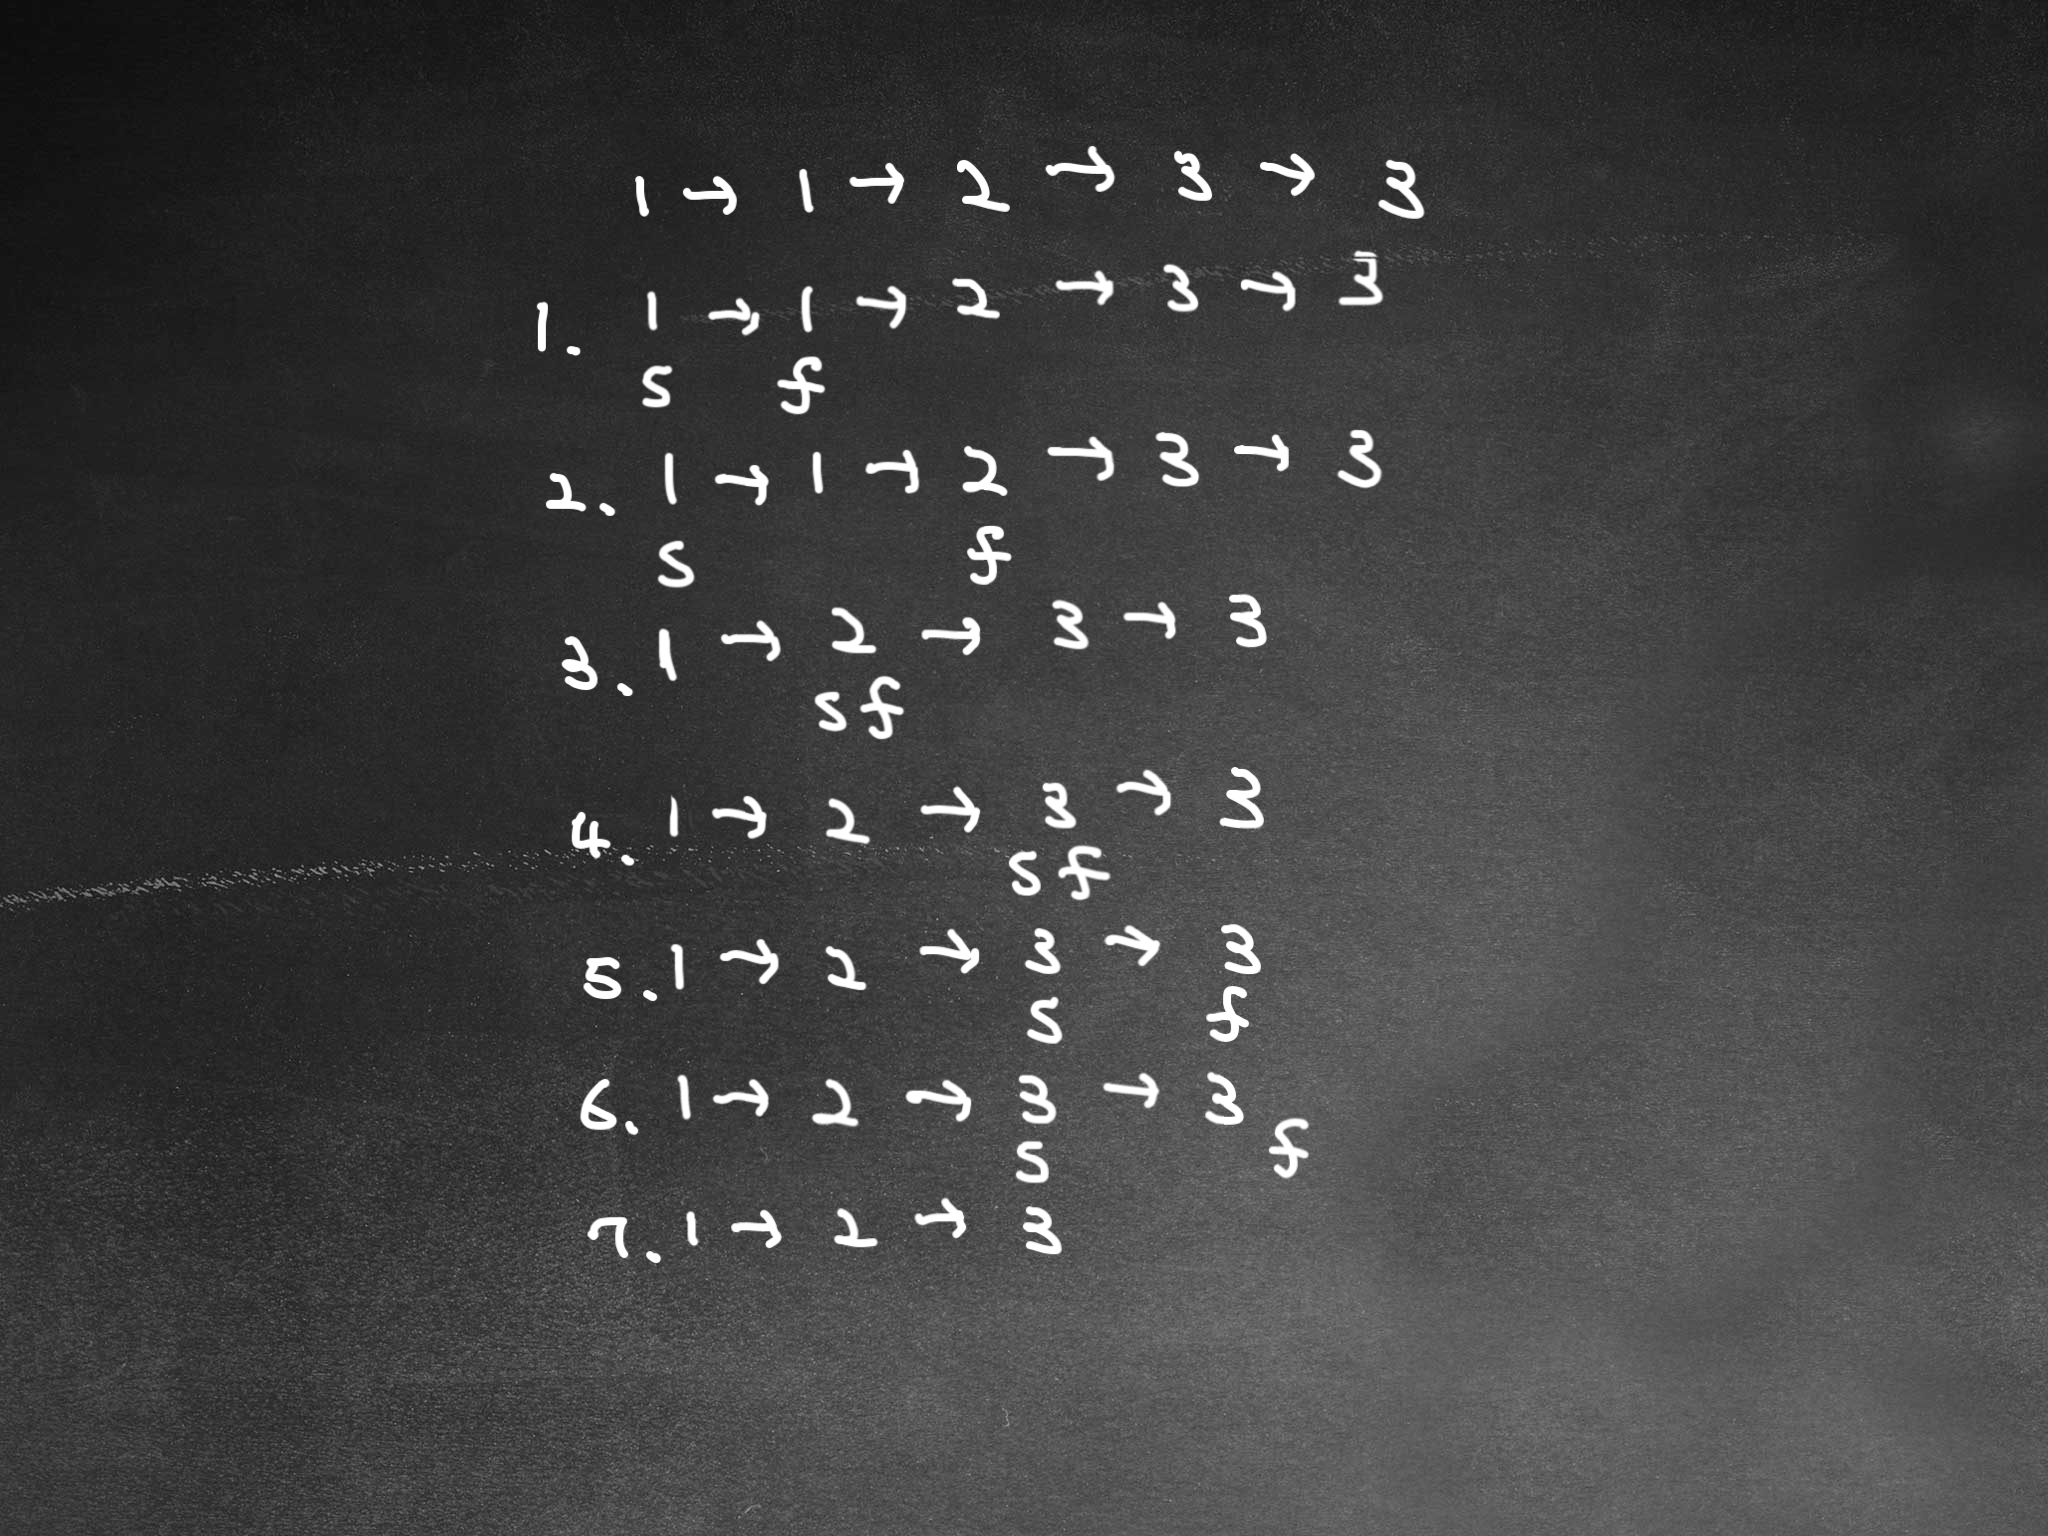 1 → 1 → 2 → 3 → 3
1. 1 → 1 → 2 → 3 → 3
s f
2. 1 → 1 → 2 → 3 → 3
s f
3. 1 → 2 → 3 → 3
s f
4. 1 → 2 → 3 → 3
s f
5. 1 → 2 → 3 → 3
s f
6. 1 → 2 → 3 → 3
s f
7. 1 → 2 → 3